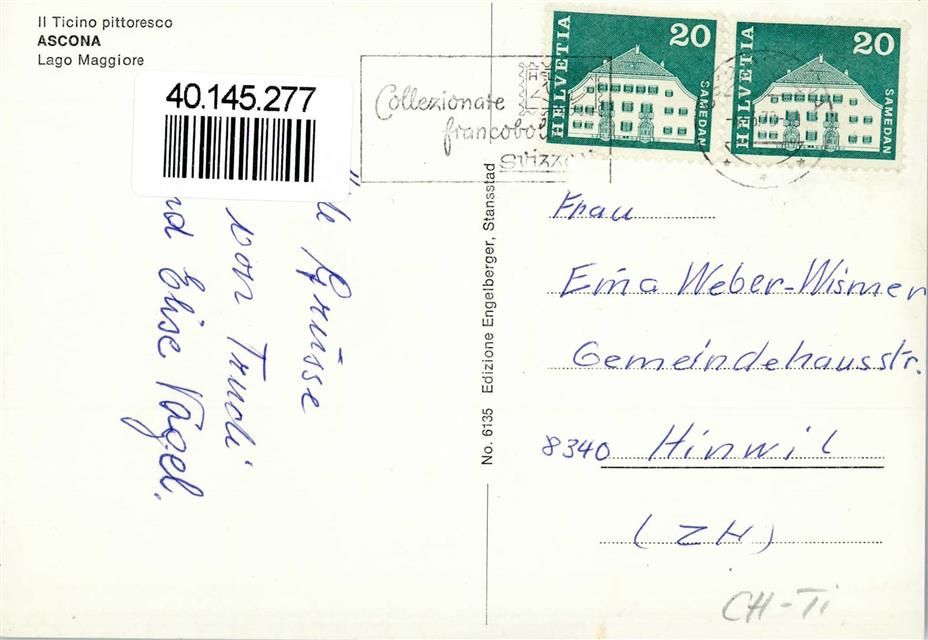 Il Ticino pittoresco
ASCONA
Lago Maggiore
40.145.277
Collezionate
francobol
svizze
HELVETIA
20
SAMEDAN
HELVETIA
20
SAMEDAN
Grüsse
von Trudi
nd Elise Vogel.
No. 6135 Edizione Engelberger, Stansstad
Frau
Erna Weber-Wismer
Gemeindehausstr.
8340 Hinwil
(ZH)
CH-Ti